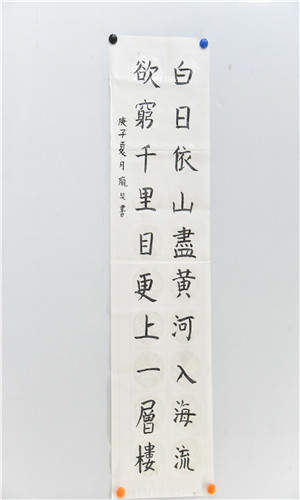 白日依山盡黃河入海流
欲窮千里目更上一層樓
庚子夏月龐
書